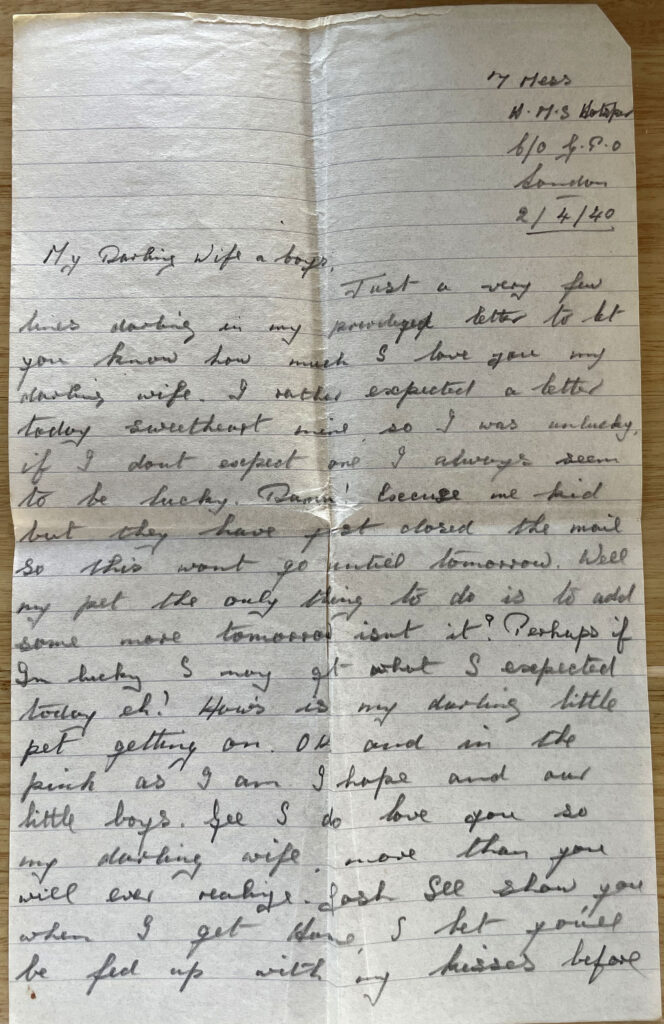 7 Mess
H.M.S Hotspur
C/O G.P.O
London
2/4/40
My Darling Wife & boys,
Just a very few
lines darling in my privileged letter to let
you know how much I love you my
darling wife. I rather expected a letter
today sweetheart mine, so I was unlucky,
if I dont expect one I always seem
to be lucky. Damn! Excuse me kid
but they have just closed the mail
so this wont go until tomorrow. Well
my pet the only thing to do is to add
some more tomorrow isnt it? Perhaps if
Im lucky I may get what I expected
today eh! Hows is my darling little
pet getting on. OK and in the
pink as I am I hope and our
little boys. Gee I do love you so
my darling wife, more than you
will ever realise. Gosh Ill show you
when I get Home, I bet you'll
be fed up with my kisses before